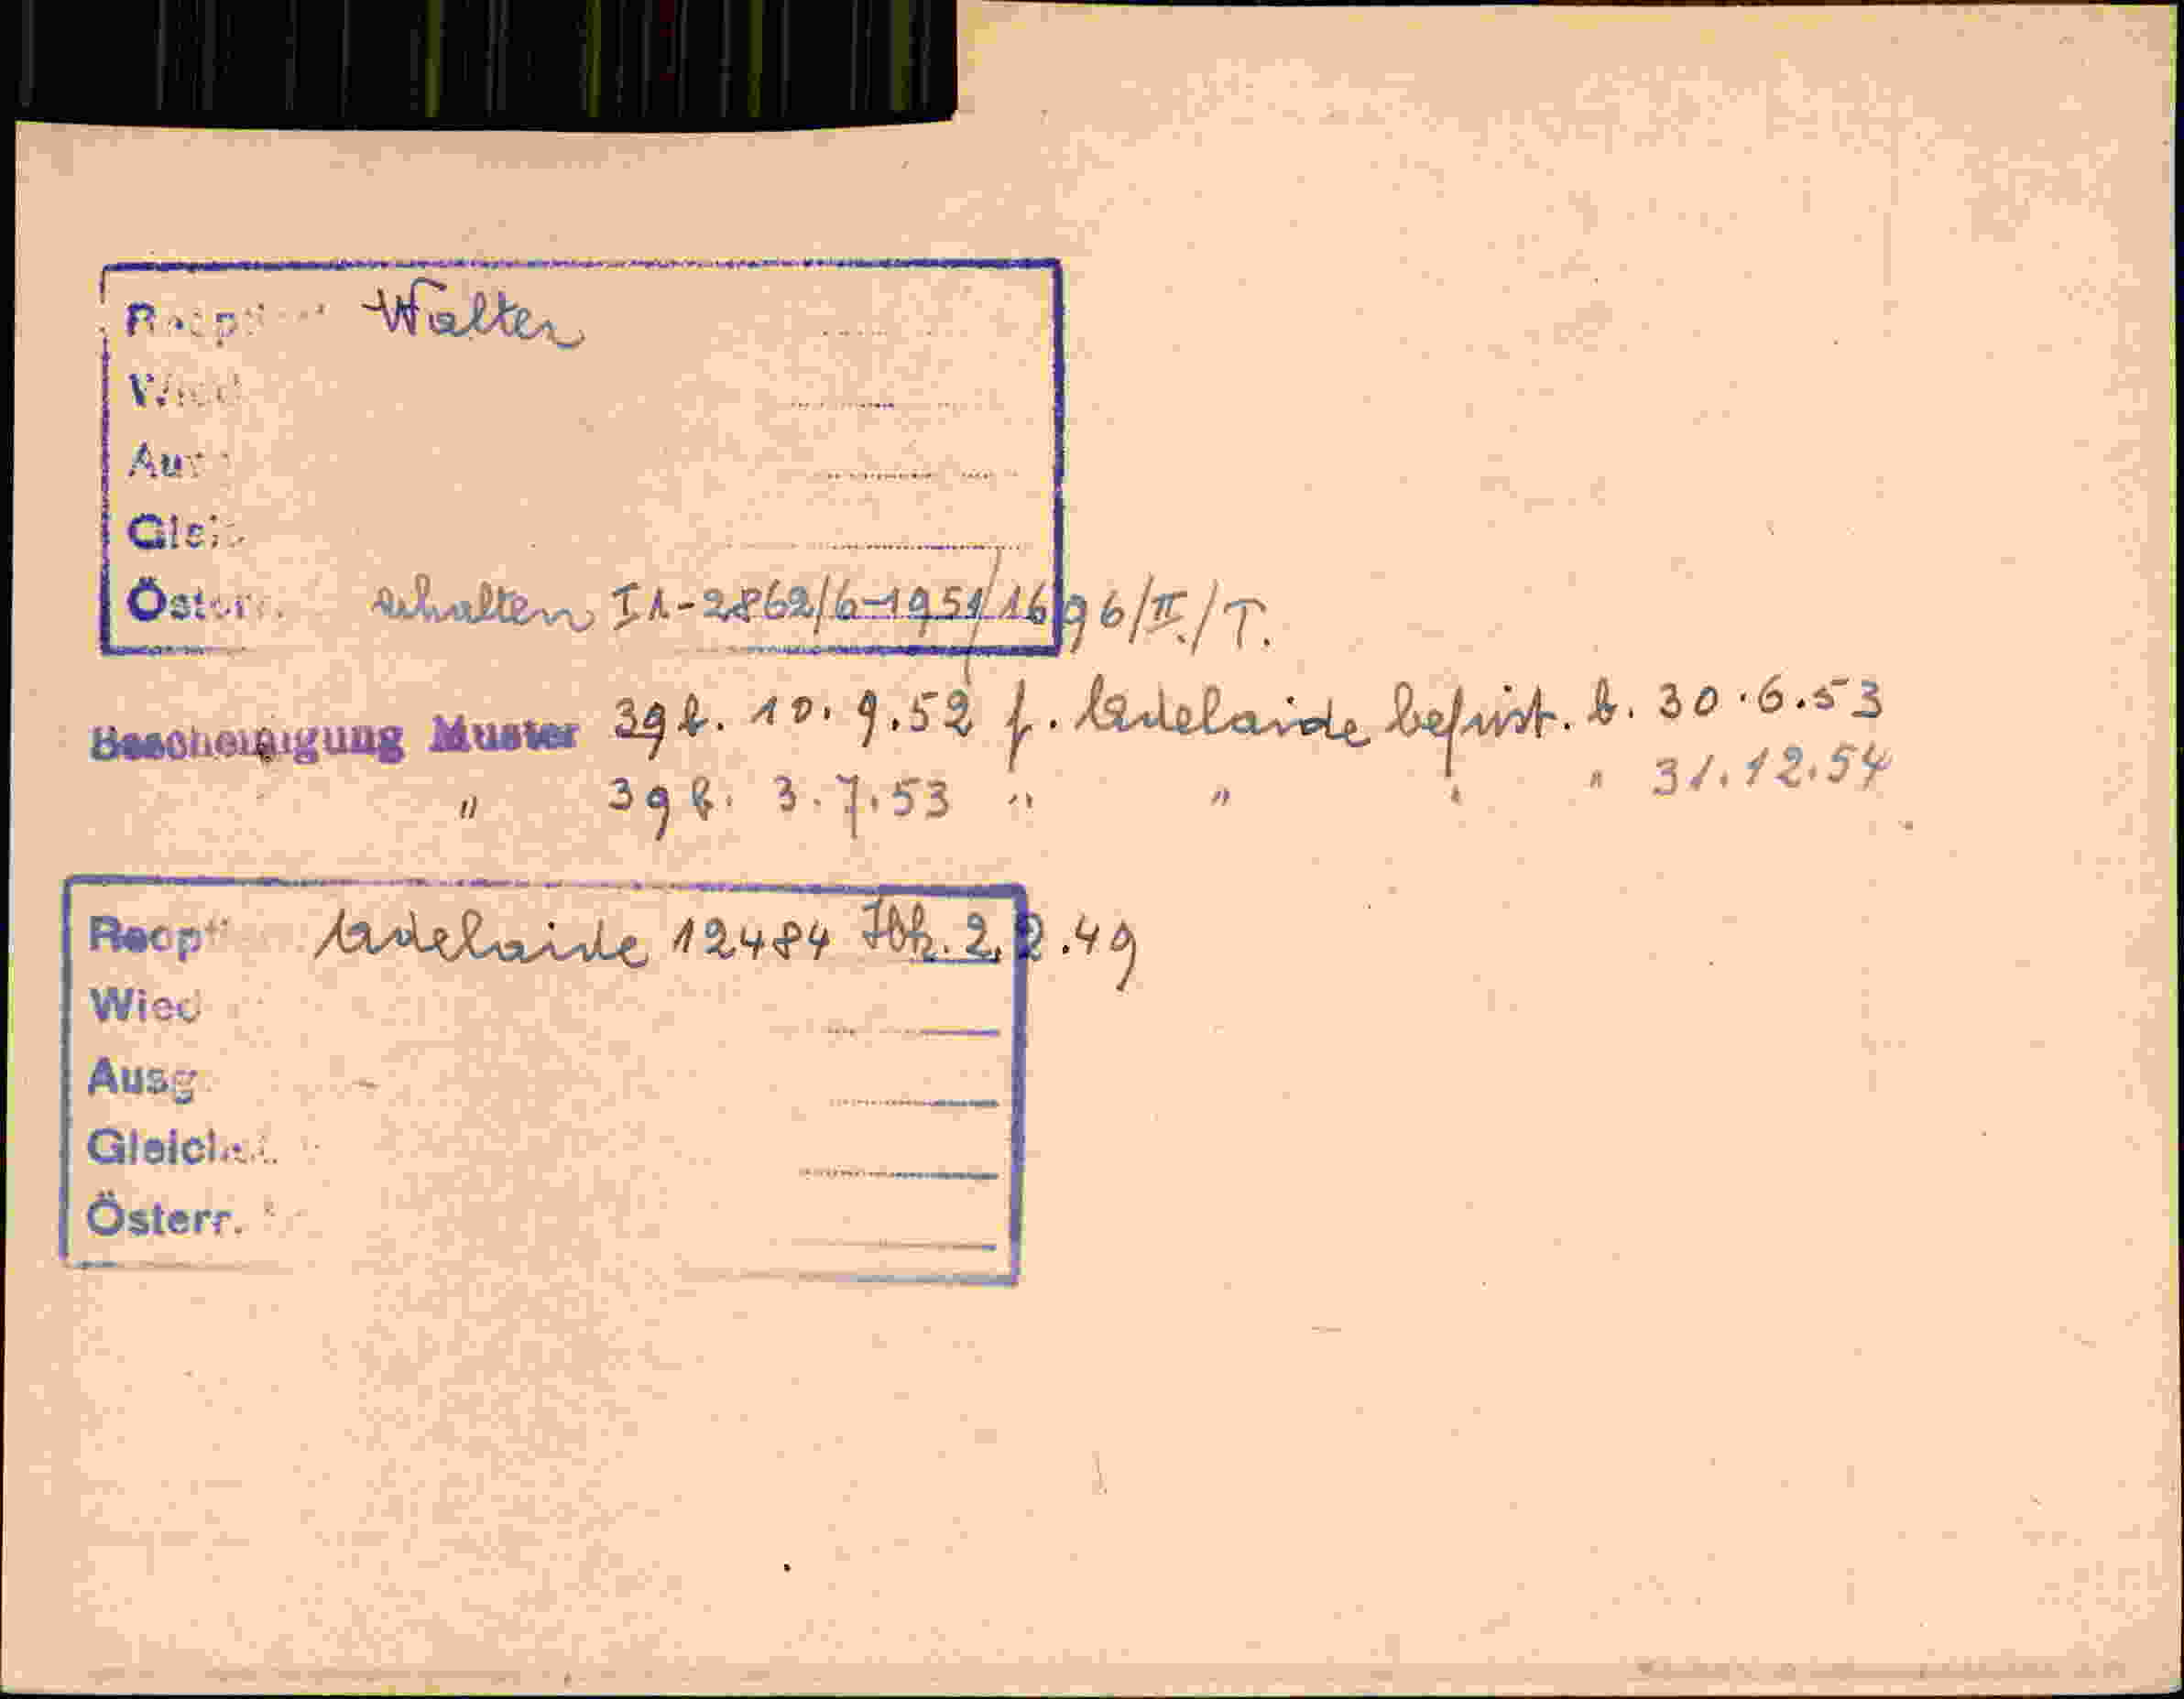 Walter
Österr. erhalten I1-2862/6-1951/1696/II./T.
Bescheinigung Muster 39 b. 10.9.52 f. Adelaide befrist. b. 30.6.53
" 39 b. 3.7.53 " " " " 31.12.54
Adelaide 12484 Ibk. 2.2.49
Wied
Ausg
Österr.